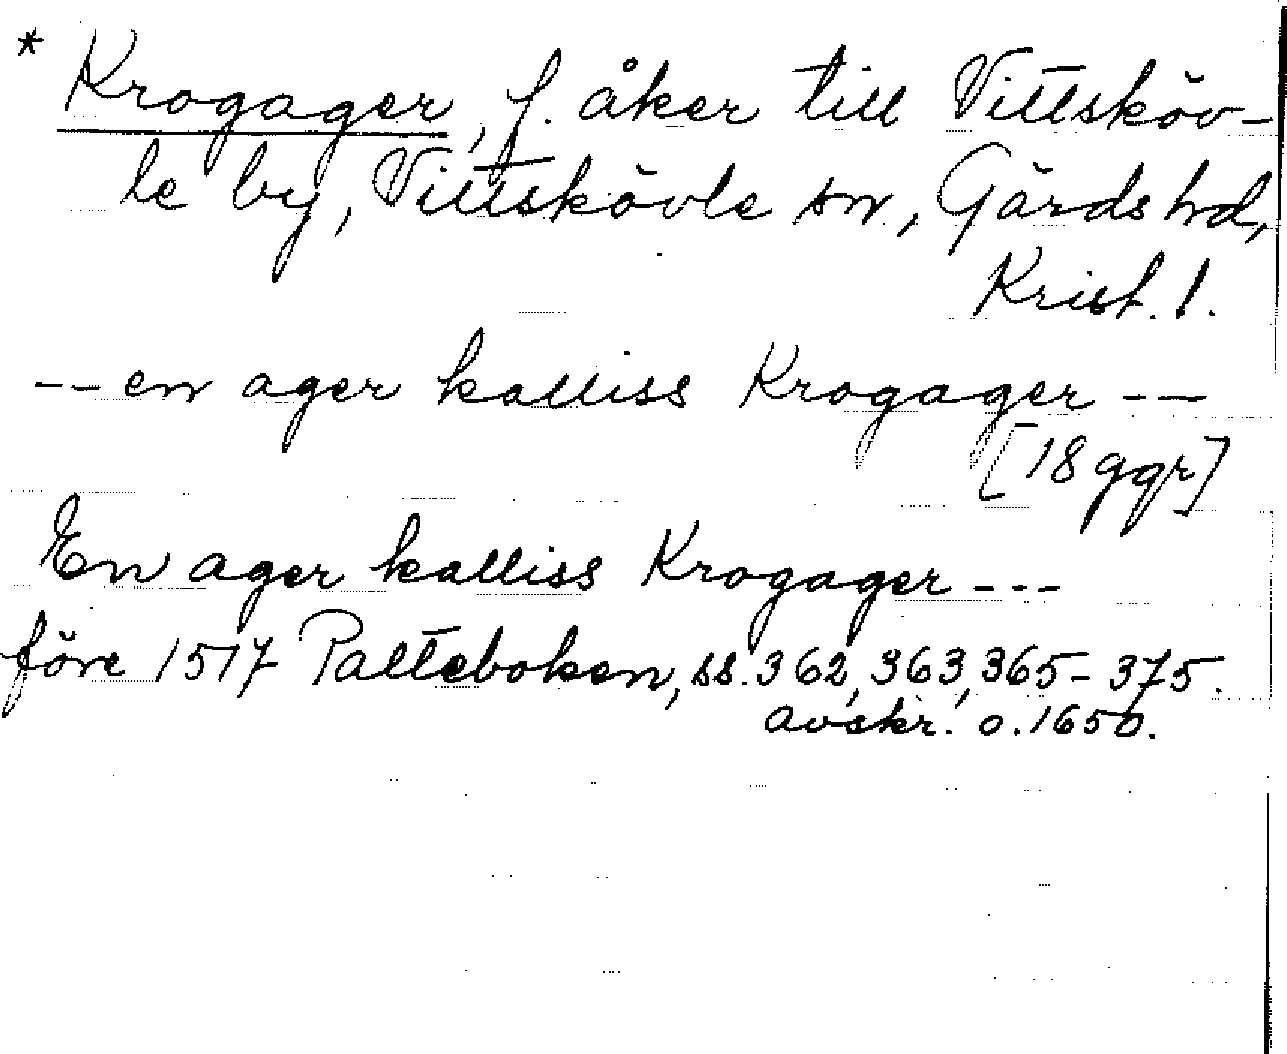 * Krogager, f. åker till Vittsköv-
le by, Vittskövle sn, Gärds hd,
Krist. l.
-- en ager kalliss Krogager --
[18 ggr]
En ager kalliss Krogager ---
före 1517 Palteboken, ss. 362, 363, 365-375.
avskr. o. 1650.